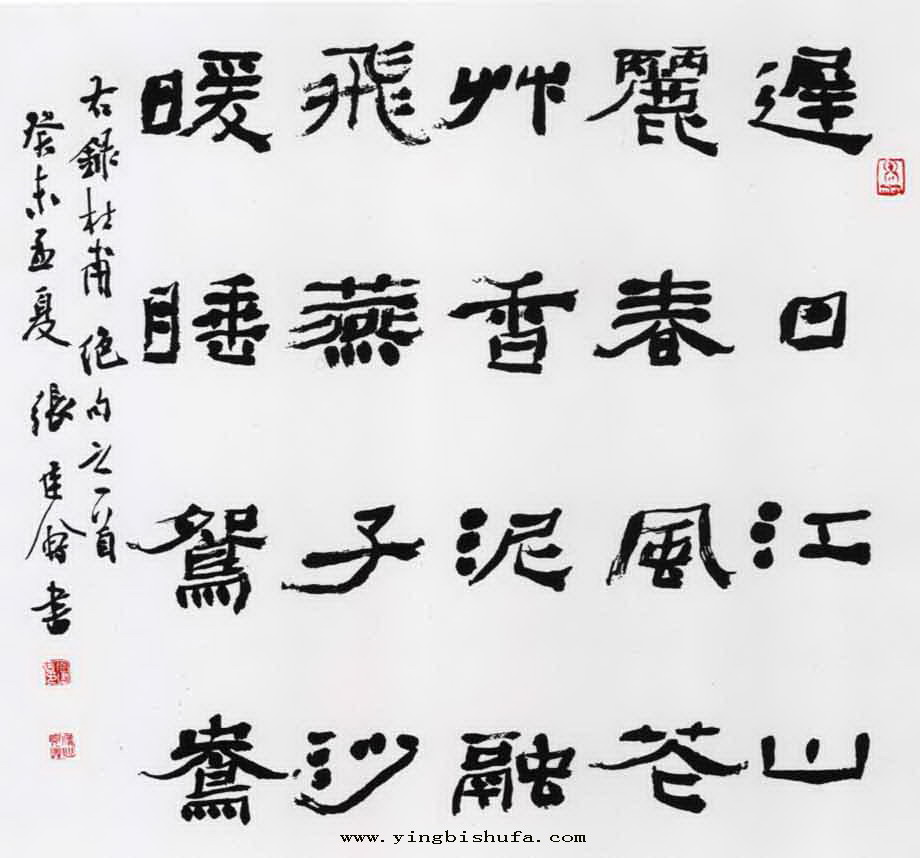 遲日江山
麗春風花
艸香泥融
飛燕子沙
暖睡鴛鴦
右錄杜甫絕句之一首
癸未孟夏張
書
www.yingbishufa.com